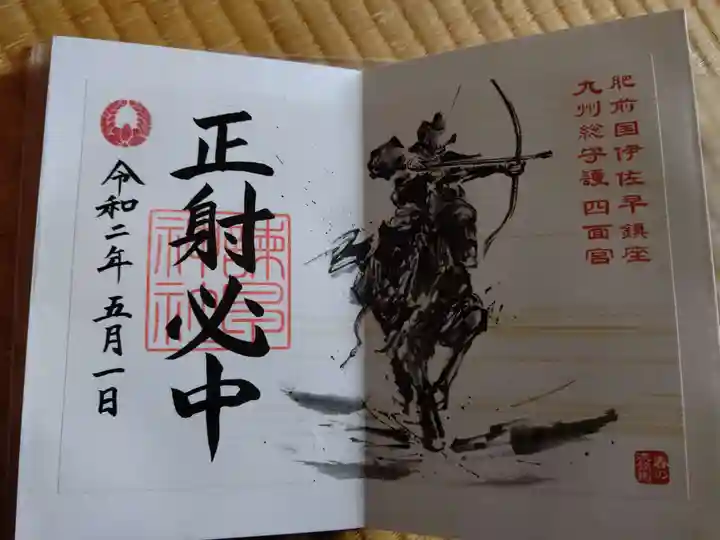 肥前国伊佐早鎮座
九州総守護 四面宮
正射必中
諫早神社
令和二年 五月一日